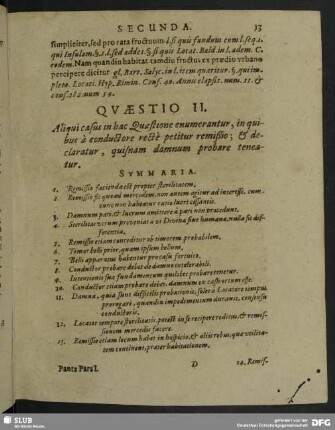 SECUNDA. 13
simpliciter, sed pro rata fructuum l. si quis fundum cum l. seq.
eodem. Nam quandiu habitat tamdiu fructus ex prædio urbano
percipere dicitur gl. Bart. Salyc. in l. item quæritur.
pleto. Locati. Hyp. Rimin. Conf. 40. Annis elapsis. num. 11. &
QVÆSTIO II.
Aliqui casus in hac Quæstione enumerantur, in quibus
à conductore rectè petitur remissio; & declaratur,
quisnam damnum probare teneatur.
SVMMARIA.
1. Remissio facienda est propter sterilitatem.
2. Remissio fit quoad mercedem, non autem agitur ad interesse, cum
tunc non habeatur ratio lucri cessantis.
3. Damnum pati, & lucrum amittere à pari non procedunt.
4. Sterilitas utrum proveniat à vi Divina sive humana, nulla sit differentia.
5. Remissio etiam conceditur ob timorem probabilem.
6. Timor belli peior, quam ipsum bellum.
7. Belli apparatus habentur pro casu fortuito.
8. Conductor probare debet de damno intolerabili.
9. Intentionis suæ fundamentum quilibet probare tenetur.
10. Conductor etiam probare debet, damnum ex casu ortum esse.
11. Damna, quia sunt difficilis probationis, solet à Locatore tempus
prorogari, quandiu impedimentum durat, consensu
conductoris.
12. Locator tempore sterilitatis, potest in se recipere reditus, & remissionem
mercedis facere.
13. Remissio etiam locum habet in hospitio, & aliis rebus, quæ utilitatem
continent, præter habitationem.
Pants Pars I. D 14. Remiss.
SLUB
Wir führen Wissen.
gefördert von der
Deutschen Forschungsgemeinschaft
DFG